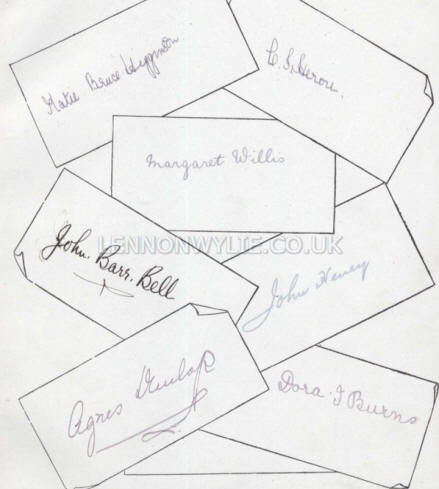 Katie Bruce Higginson
C. S. Heron.
Margaret Willis
LENNONWYLIE.CO.UK
John. Barr. Bell
John Heney
Agnes Dunlop
Dora. J Burns